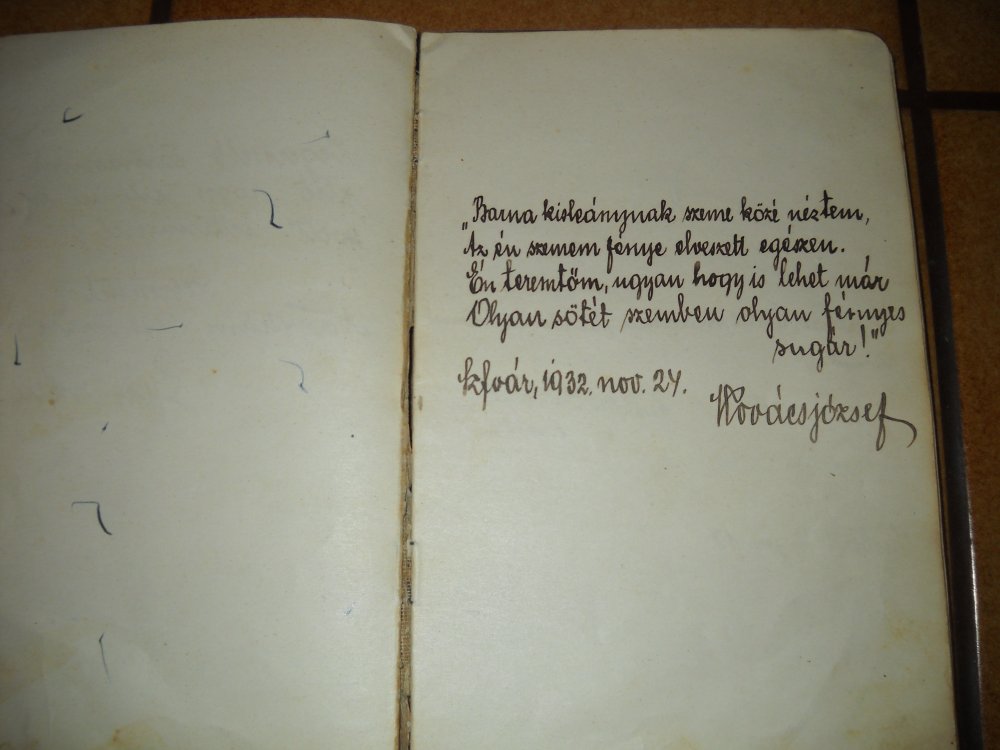 „Barna kisleánynak szeme közé néztem,
Az én szemem fénye elveszett egészen.
Én teremtőm, ugyan hogy is lehet már
Olyan sötét szemben olyan fényes
sugár!"
Kfvár, 1932. nov. 24.
Kovácsjózsef